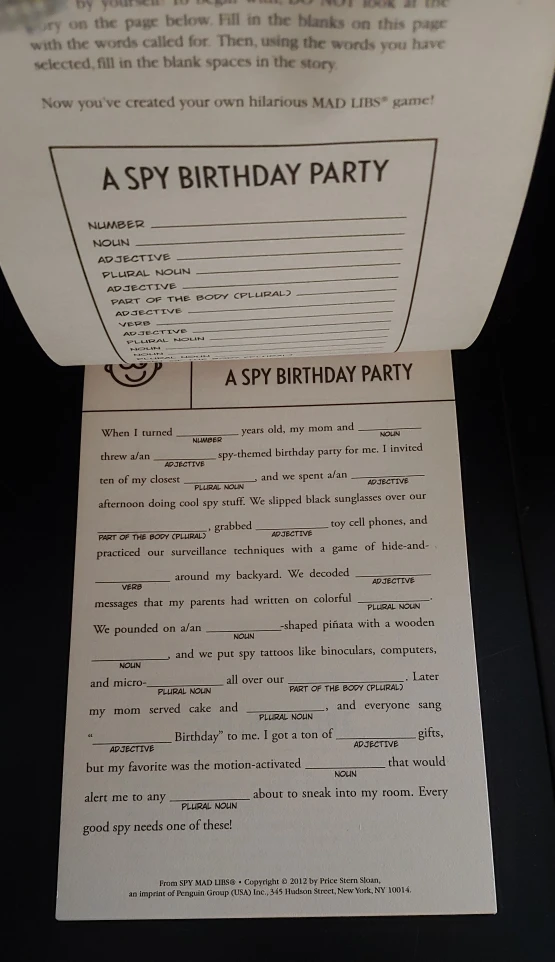 by yourself. To begin with, DO NOT look at the
story on the page below. Fill in the blanks on this page
with the words called for. Then, using the words you have
selected, fill in the blank spaces in the story.
Now you've created your own hilarious MAD LIBS® game!
A SPY BIRTHDAY PARTY
NUMBER
NOUN
ADJECTIVE
PLURAL NOUN
ADJECTIVE
PART OF THE BODY (PLURAL)
ADJECTIVE
VERB
ADJECTIVE
PLURAL NOUN
NOUN
NOUN
PLURAL NOUN
A SPY BIRTHDAY PARTY
When I turned ________ years old, my mom and ________
NUMBER NOUN
threw a/an ________ spy-themed birthday party for me. I invited
ADJECTIVE
ten of my closest ________, and we spent a/an ________
PLURAL NOUN ADJECTIVE
afternoon doing cool spy stuff. We slipped black sunglasses over our
________, grabbed ________ toy cell phones, and
PART OF THE BODY (PLURAL) ADJECTIVE
practiced our surveillance techniques with a game of hide-and-
________ around my backyard. We decoded ________
VERB ADJECTIVE
messages that my parents had written on colorful ________.
PLURAL NOUN
We pounded on a/an ________-shaped piñata with a wooden
NOUN
________, and we put spy tattoos like binoculars, computers,
NOUN
and micro-________ all over our ________. Later
PLURAL NOUN PART OF THE BODY (PLURAL)
my mom served cake and ________, and everyone sang
PLURAL NOUN
"________ Birthday" to me. I got a ton of ________ gifts,
ADJECTIVE ADJECTIVE
but my favorite was the motion-activated ________ that would
NOUN
alert me to any ________ about to sneak into my room. Every
PLURAL NOUN
good spy needs one of these!
From SPY MAD LIBS® • Copyright © 2012 by Price Stern Sloan,
an imprint of Penguin Group (USA) Inc., 345 Hudson Street, New York, NY 10014.